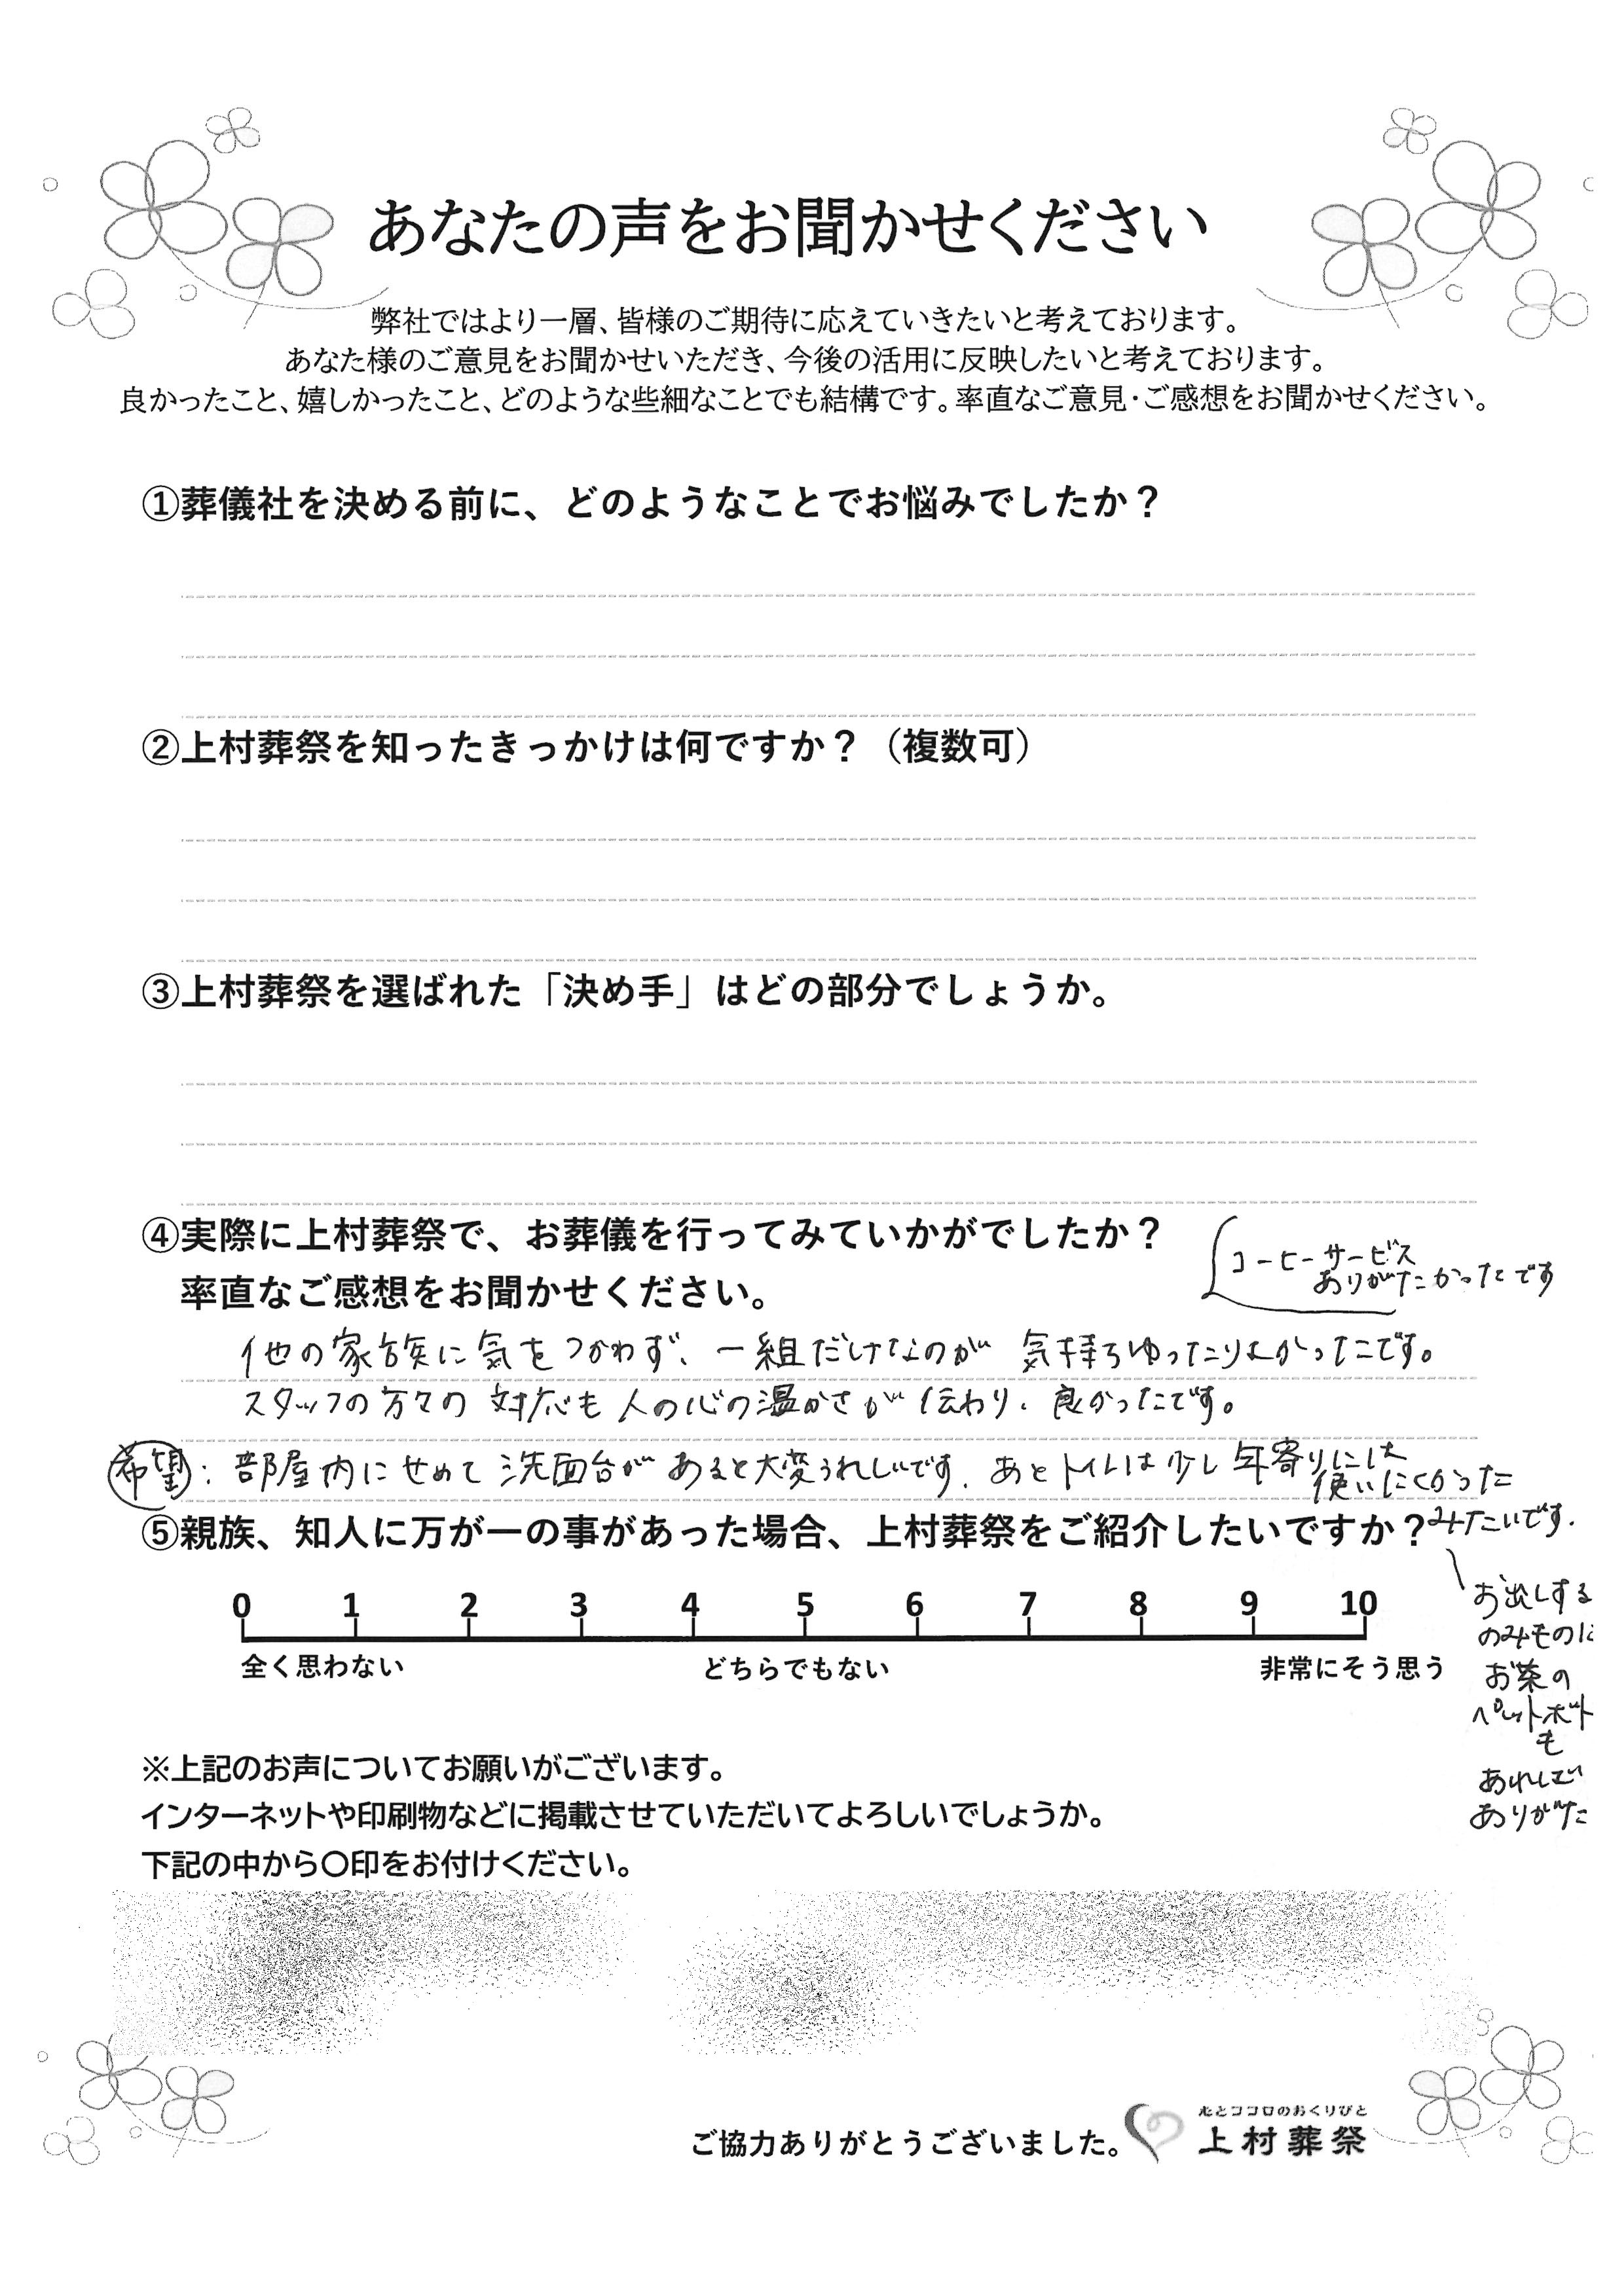 あなたの声をお聞かせください
弊社ではより一層、皆様のご期待に応えていきたいと考えております。
あなた様のご意見をお聞かせいただき、今後の活用に反映したいと考えております。
良かったこと、嬉しかったこと、どのような些細なことでも結構です。率直なご意見・ご感想をお聞かせください。
①葬儀社を決める前に、どのようなことでお悩みでしたか？
②上村葬祭を知ったきっかけは何ですか？（複数可）
③上村葬祭を選ばれた「決め手」はどの部分でしょうか。
④実際に上村葬祭で、お葬儀を行ってみていかがでしたか？
率直なご感想をお聞かせください。
コーヒーサービス
ありがたかったです
他の家族に気をつかわず、一組だけなのが 気持ちゆったりよかったです。
スタッフの方々の 対応も 人の心の温かさが 伝わり、良かったです。
希望：部屋内にせめて 洗面台が あると大変うれしいです。あとトイレは少し年寄りには
使いにくかった
みたいです.
⑤親族、知人に万が一の事があった場合、上村葬祭をご紹介したいですか？
0 1 2 3 4 5 6 7 8 9 10
全く思わない どちらでもない 非常にそう思う
お出しする
のみものに
お茶の
ペットボト
も
ありがた
※上記のお声についてお願いがございます。
インターネットや印刷物などに掲載させていただいてよろしいでしょうか。
下記の中から〇印をお付けください。
ご協力ありがとうございました。
心とココロのおくりびと
上村葬祭